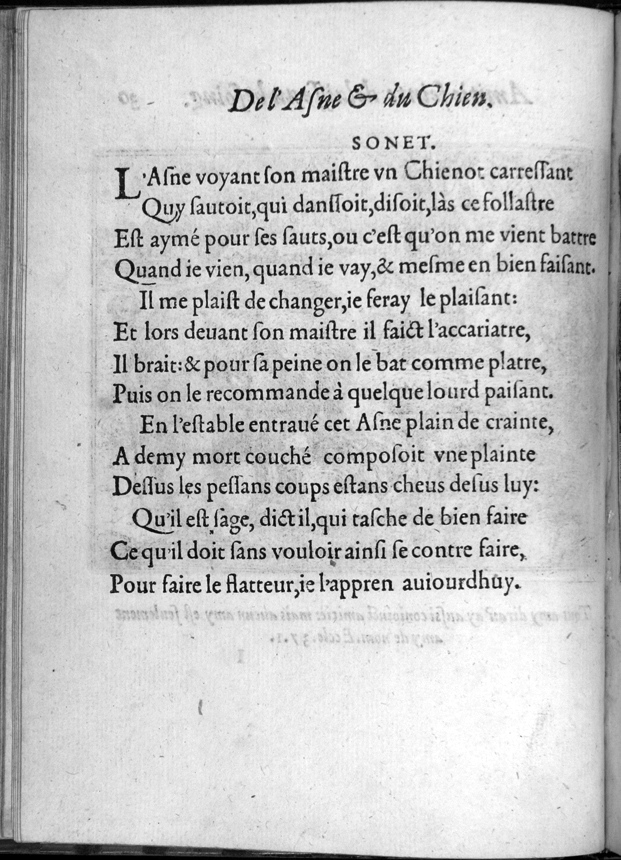 De l'Aſne & du Chien.
SONET.
L'Aſne voyant ſon maiſtre vn Chienot carreſſant
Quy ſautoit,qui danſſoit,diſoit,làs ce follaſtre
Eſt aymé pour ſes ſauts,ou c'eſt qu'on me vient battre
Quand ie vien, quand ie vay,& meſme en bien faiſant.
Il me plaiſt de changer,ie feray le plaiſant:
Et lors deuant ſon maiſtre il faict l'accariatre,
Il brait:& pour ſa peine on le bat comme platre,
Puis on le recommande à quelque lourd paiſant.
En l'eſtable entraué cet Aſne plain de crainte,
A demy mort couché compoſoit vne plainte
Deſſus les peſſans coups eſtans cheus deſus luy:
Qu'il eſt ſage, dict il,qui taſche de bien faire
Ce qu'il doit ſans vouloir ainſi ſe contre faire,
Pour faire le flatteur,ie l'appren auiourdhuy.